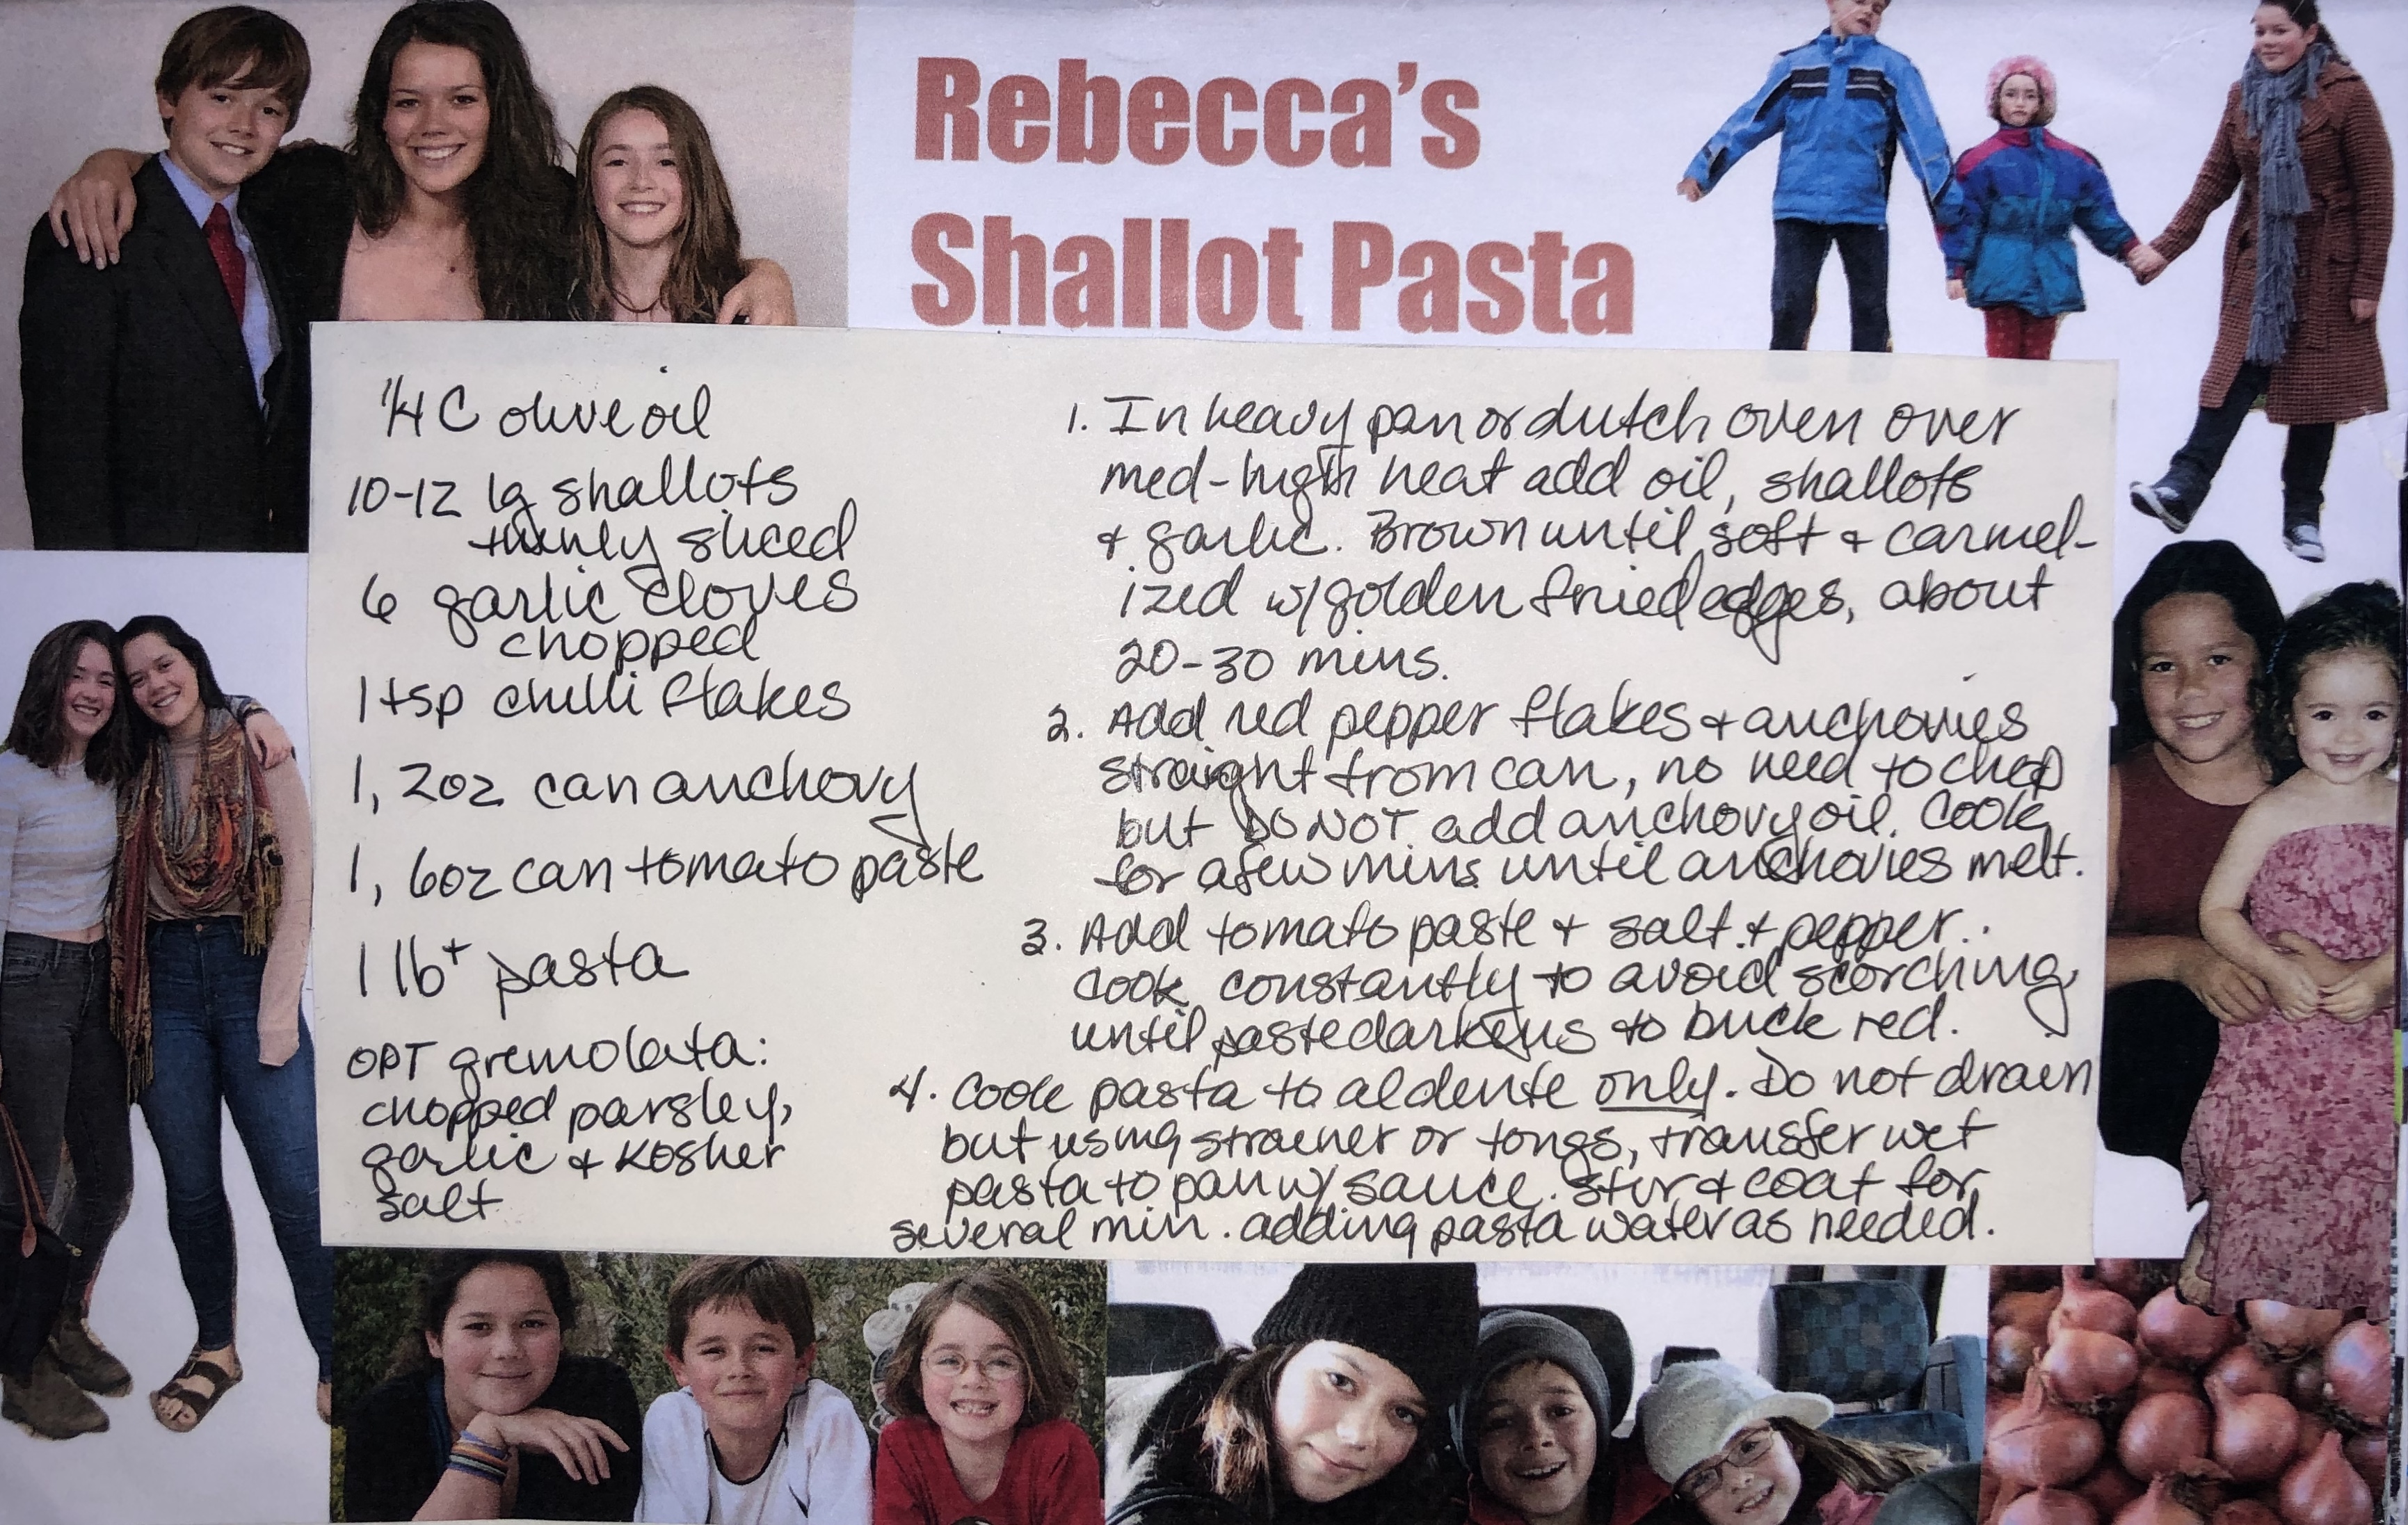 Rebecca's
Shallot Pasta
1/4 C olive oil
10-12 lg shallots
thinly sliced
6 garlic cloves
chopped
1 tsp chilli flakes
1, 2oz can anchovy
1, 6oz can tomato paste
1 lb+ pasta
OPT gremolata:
chopped parsley,
garlic & Kosher
salt
1. In heavy pan or dutch oven over
med-high heat add oil, shallots
& garlic. Brown until soft & carmel-
ized w/golden fried edges, about
20-30 mins.
2. Add red pepper flakes & anchovies
straight from can, no need to chop
but DO NOT add anchovy oil. Cook
for a few mins until anchovies melt.
3. Add tomato paste & salt & pepper.
Cook constantly to avoid scorching,
until paste darkens to brick red.
4. Cook pasta to al dente only. Do not drain
but using strainer or tongs, transfer wet
pasta to pan w/ sauce. Stir & coat for
several min. adding pasta water as needed.